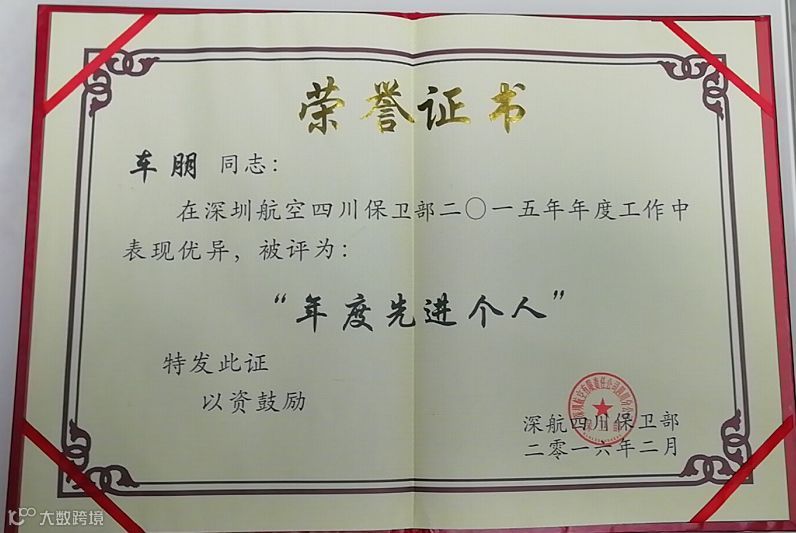 荣誉证书
车朋 同志：
在深圳航空四川保卫部二〇一五年年度工作中
表现优异，被评为：
“年度先进个人”
特发此证
以资鼓励
深圳航空有限责任公司四川分公司
深航四川保卫部
二零一六年二月
大数跨境